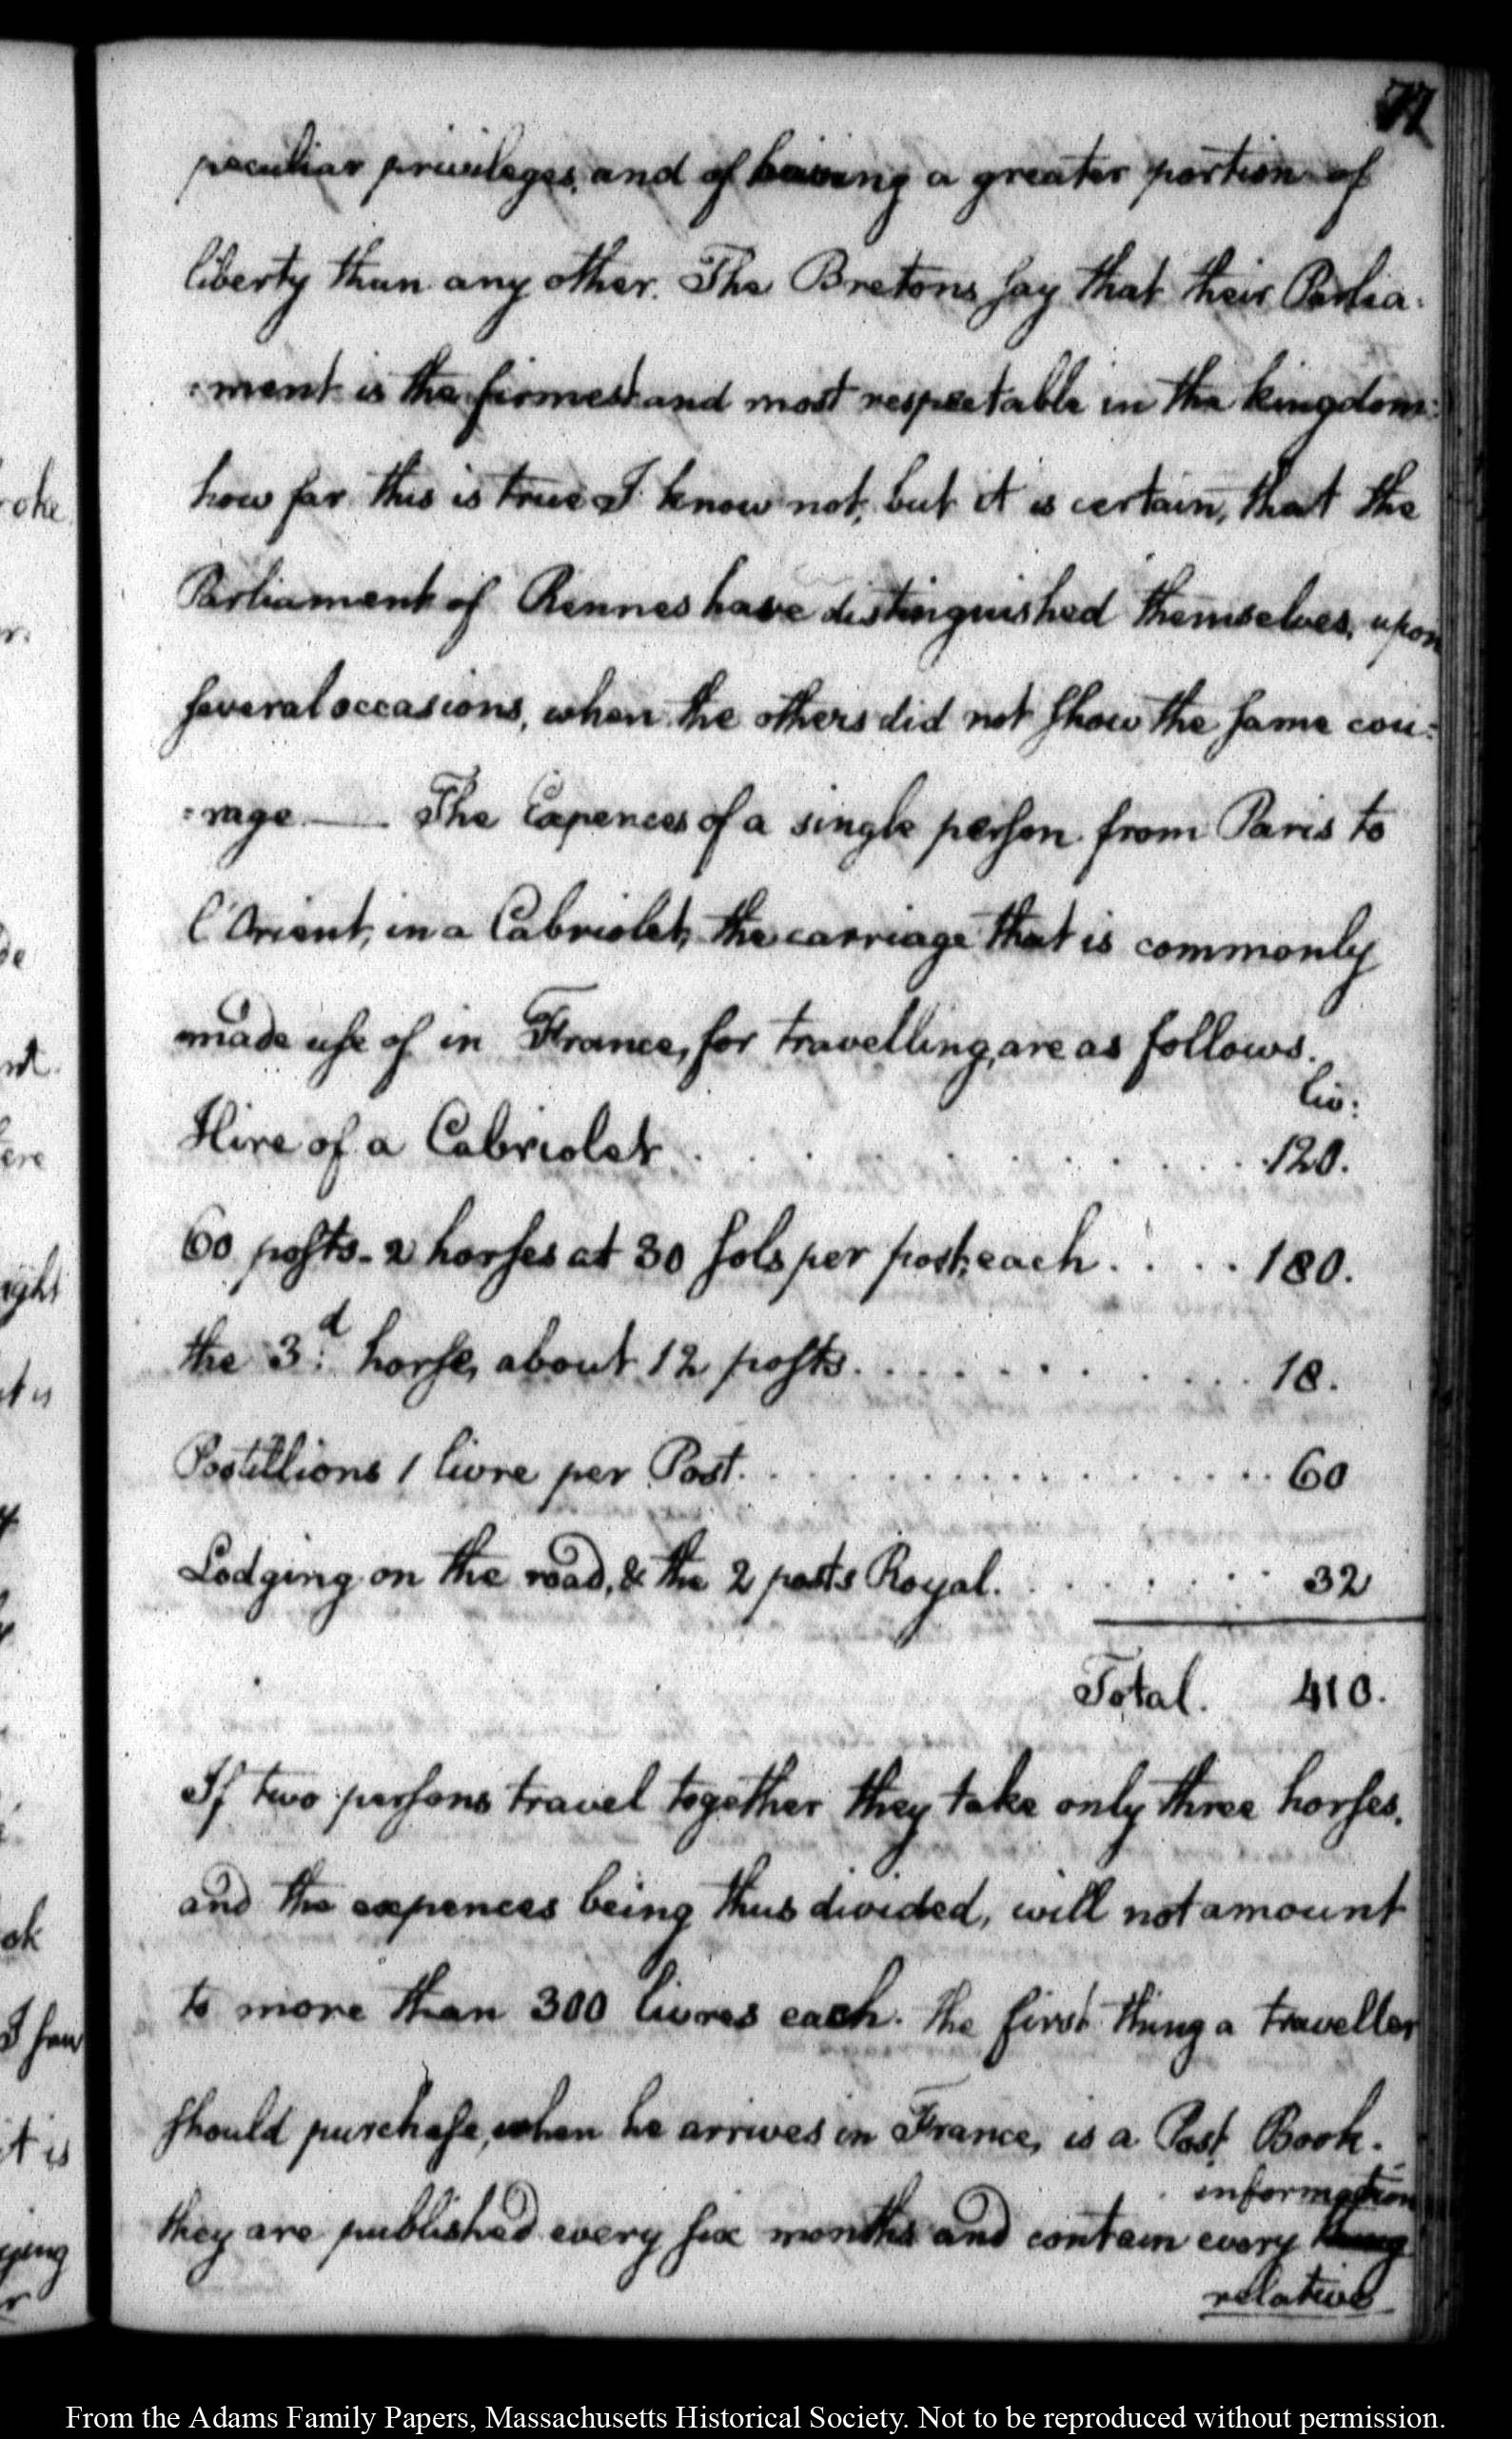 77
peculiar privileges, and of having a greater portion of
liberty than any other. The Bretons say that their Parlia:
:ment is the firmest and most respectable in the kingdom:
how far this is true I know not, but it is certain, that the
Parliament of Rennes have distinguished themselves, upon
several occasions, when the others did not show the same cou:
:rage — The Expences of a single person from Paris to
l'Orient, in a Cabriolet, the carriage that is commonly
made use of in France, for travelling, are as follows.
liv:
Hire of a Cabriolet . . . . . . . . . . 120.
60 posts - 2 horses at 30 sols per post, each . . . . . 180.
the 3:d horse, about 12 posts . . . . . . . . . . 18.
Postillions 1 livre per Post . . . . . . . . . . 60
Lodging on the road, & the 2 posts Royal . . . . . . . 32
Total. 410.
If two persons travel together they take only three horses,
and the expences being thus divided, will not amount
to more than 300 livres each. the first thing a traveller
should purchase, when he arrives in France, is a Post Book.
information
they are published every six months and contain every thing
relative
oke
r.
de
nt.
ere
ight
ok
I saw
it is
ying
From the Adams Family Papers, Massachusetts Historical Society. Not to be reproduced without permission.